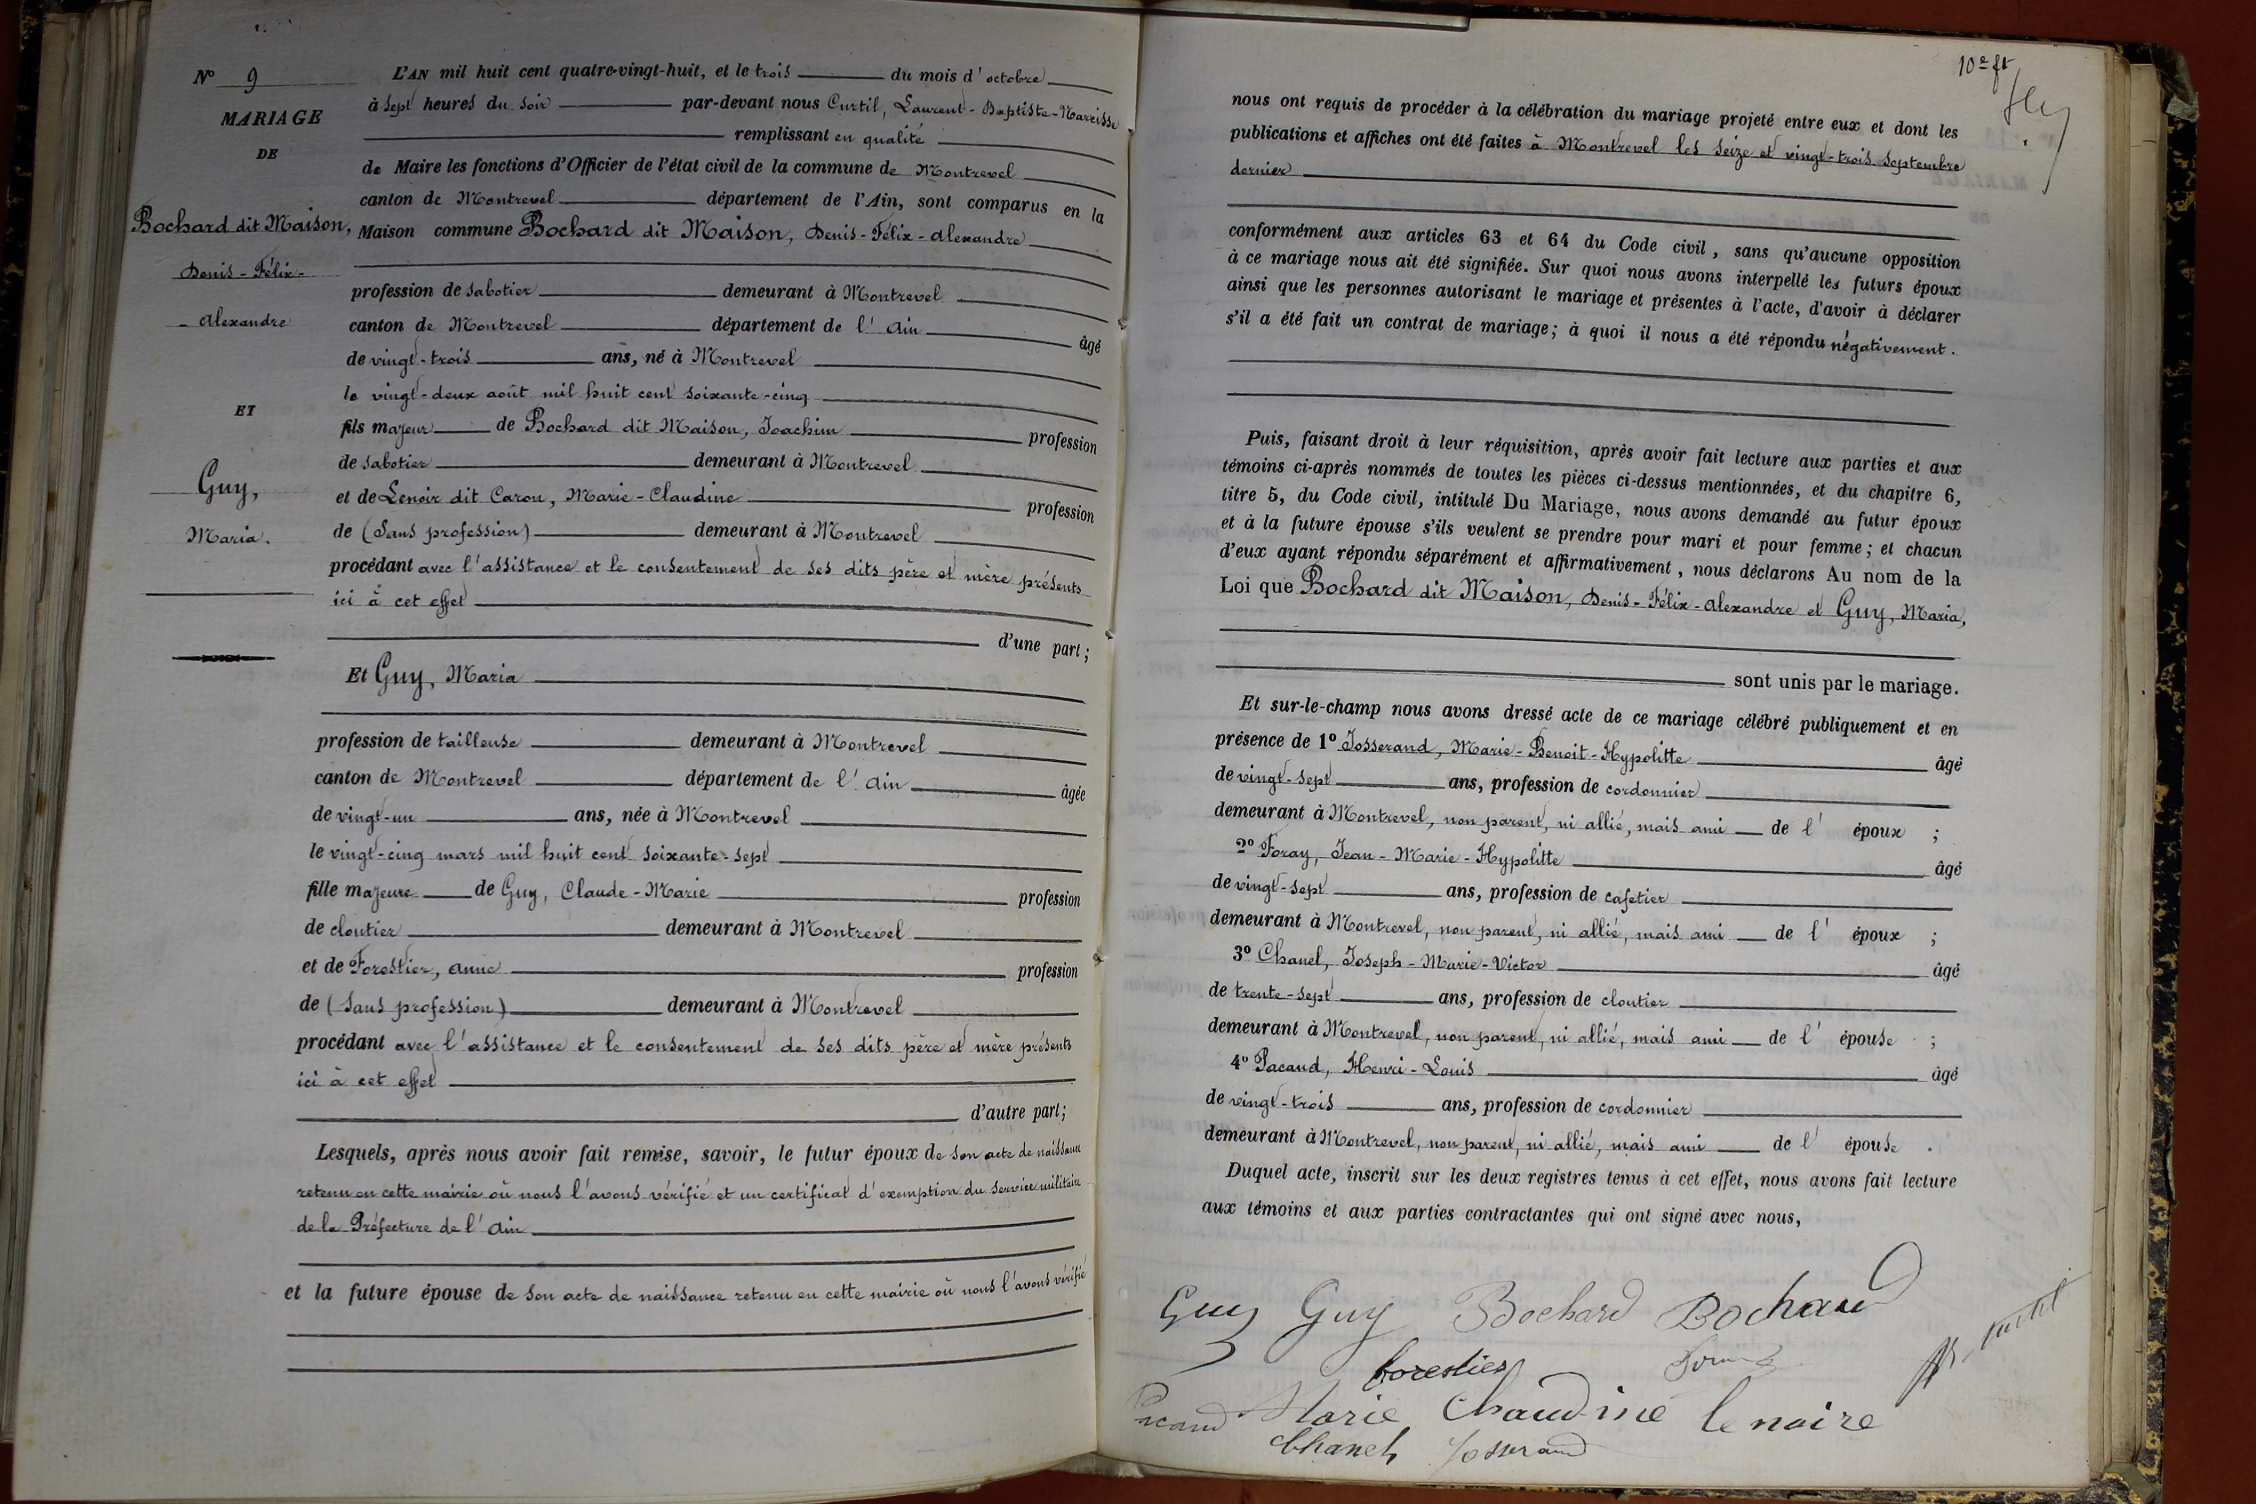 N° 9
MARIAGE
DE
Bochard dit Maison,
Denis-Félix-
-Alexandre
ET
Guy,
Maria.
L'AN mil huit cent quatre-vingt-huit, et le trois du mois d'octobre
à sept heures du soir par-devant nous Curtil, Laurent-Baptiste-Narcisse
remplissant en qualité
de Maire les fonctions d'Officier de l'état civil de la commune de Montrevel
canton de Montrevel département de l'Ain, sont comparus en la
Maison commune Bochard dit Maison, Denis-Félix-Alexandre
profession de sabotier demeurant à Montrevel
canton de Montrevel département de l'Ain âgé
de vingt-trois ans, né à Montrevel
le vingt-deux août mil huit cent soixante-cinq
fils majeur de Bochard dit Maison, Joachim profession
de sabotier demeurant à Montrevel
et de Lenoir dit Caron, Marie-Claudine profession
de (Sans profession) demeurant à Montrevel
procédant avec l'assistance et le consentement de ses dits père et mère présents
ici à cet effet
d'une part;
Et Guy, Maria
profession de tailleuse demeurant à Montrevel
canton de Montrevel département de l'Ain âgée
de vingt-un ans, née à Montrevel
le vingt-cinq mars mil huit cent soixante-sept
fille majeure de Guy, Claude-Marie profession
de cloutier demeurant à Montrevel
et de Forestier, Anne profession
de (Sans profession) demeurant à Montrevel
procédant avec l'assistance et le consentement de ses dits père et mère présents
ici à cet effet
d'autre part;
Lesquels, après nous avoir fait remise, savoir, le futur époux de son acte de naissance
retenu en cette mairie où nous l'avons vérifié et un certificat d'exemption du service militaire
de la Préfecture de l'Ain
et la future épouse de son acte de naissance retenu en cette mairie où nous l'avons vérifié
10e ft
nous ont requis de procéder à la célébration du mariage projeté entre eux et dont les
publications et affiches ont été faites à Montrevel les seize et vingt-trois septembre
dernier
conformément aux articles 63 et 64 du Code civil, sans qu'aucune opposition
à ce mariage nous ait été signifiée. Sur quoi nous avons interpellé les futurs époux
ainsi que les personnes autorisant le mariage et présentes à l'acte, d'avoir à déclarer
s'il a été fait un contrat de mariage; à quoi il nous a été répondu négativement.
Puis, faisant droit à leur réquisition, après avoir fait lecture aux parties et aux
témoins ci-après nommés de toutes les pièces ci-dessus mentionnées, et du chapitre 6,
titre 5, du Code civil, intitulé Du Mariage, nous avons demandé au futur époux
et à la future épouse s'ils veulent se prendre pour mari et pour femme; et chacun
d'eux ayant répondu séparément et affirmativement, nous déclarons Au nom de la
Loi que Bochard dit Maison, Denis-Félix-Alexandre et Guy, Maria,
sont unis par le mariage.
Et sur-le-champ nous avons dressé acte de ce mariage célébré publiquement et en
présence de 1° Josserand, Marie-Benoit-Hypolitte âgé
de vingt-sept ans, profession de cordonnier
demeurant à Montrevel, non parent, ni allié, mais ami de l'époux ;
2° Foray, Jean-Marie-Hypolitte âgé
de vingt-sept ans, profession de cafetier
demeurant à Montrevel, non parent, ni allié, mais ami de l'époux ;
3° Chanel, Joseph-Marie-Victor âgé
de trente-sept ans, profession de cloutier
demeurant à Montrevel, non parent, ni allié, mais ami de l'épouse ;
4° Pacand, Henri-Louis âgé
de vingt-trois ans, profession de cordonnier
demeurant à Montrevel, non parent, ni allié, mais ami de l'épouse .
Duquel acte, inscrit sur les deux registres tenus à cet effet, nous avons fait lecture
aux témoins et aux parties contractantes qui ont signé avec nous,
Guy Guy Bochard Bochard
forestier
Pacand Marie Chaudine lenoire
Chanel Josserand